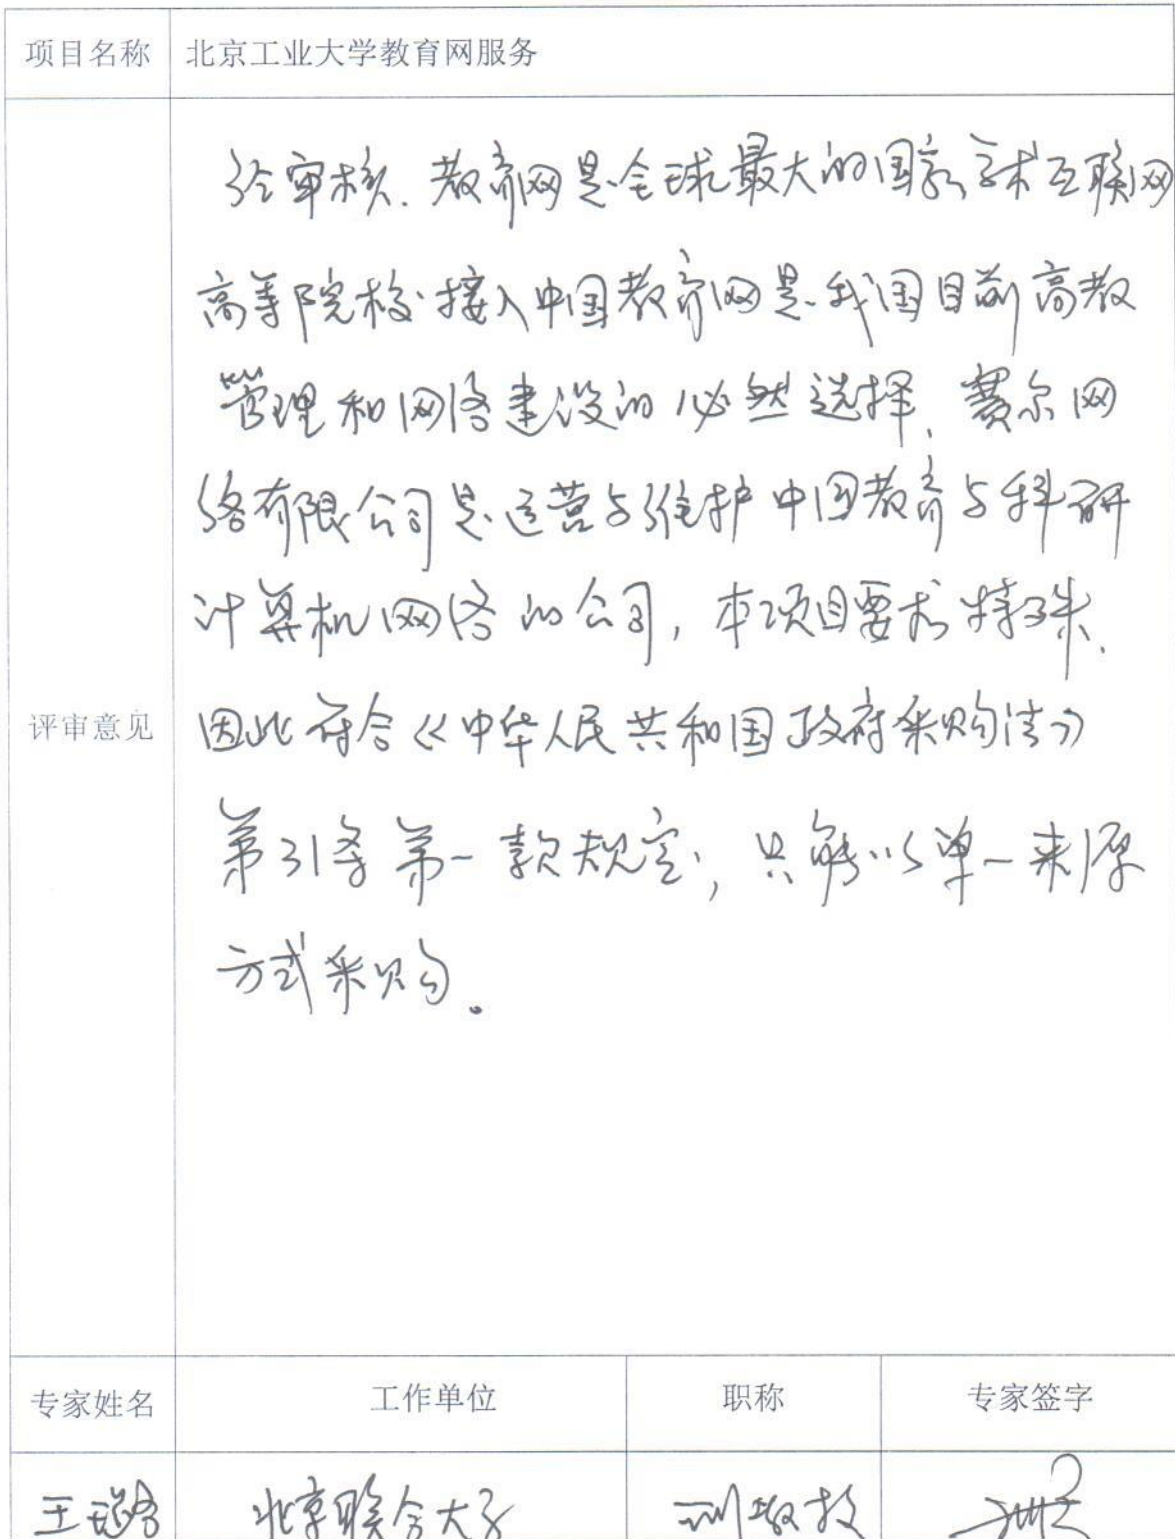 项目名称 北京工业大学教育网服务
经审核.教育网是全球最大的国家学术互联网
高等院校接入中国教育网是我国目前高教
管理和网络建设的必然选择,赛尔网
络有限公司是运营与维护中国教育与科研
计算机网络的公司,本项目要求特殊,
评审意见
因此符合《中华人民共和国政府采购法》
第31条第一款规定,只能以单一来源
方式采购。
专家姓名 工作单位 职称 专家签字
王 北京联合大学 副教授